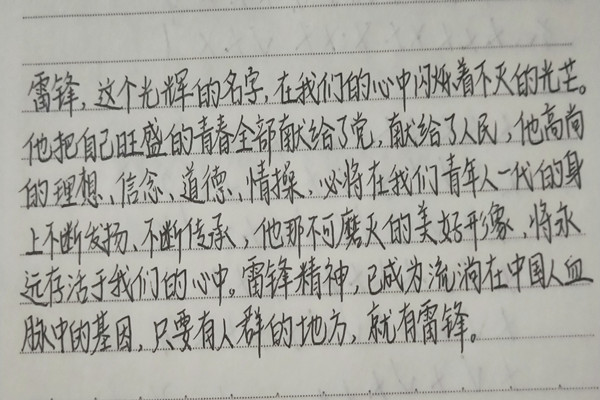 雷锋，这个光辉的名字，在我们的心中闪烁着不灭的光芒。
他把自己旺盛的青春全部献给了党，献给了人民，他高尚
的理想、信念、道德、情操、必将在我们青年人一代的身
上不断发扬、不断传承，他那不可磨灭的美好形象，将永
远存活于我们的心中。雷锋精神，已成为流淌在中国人血
脉中的基因，只要有人群的地方，就有雷锋。